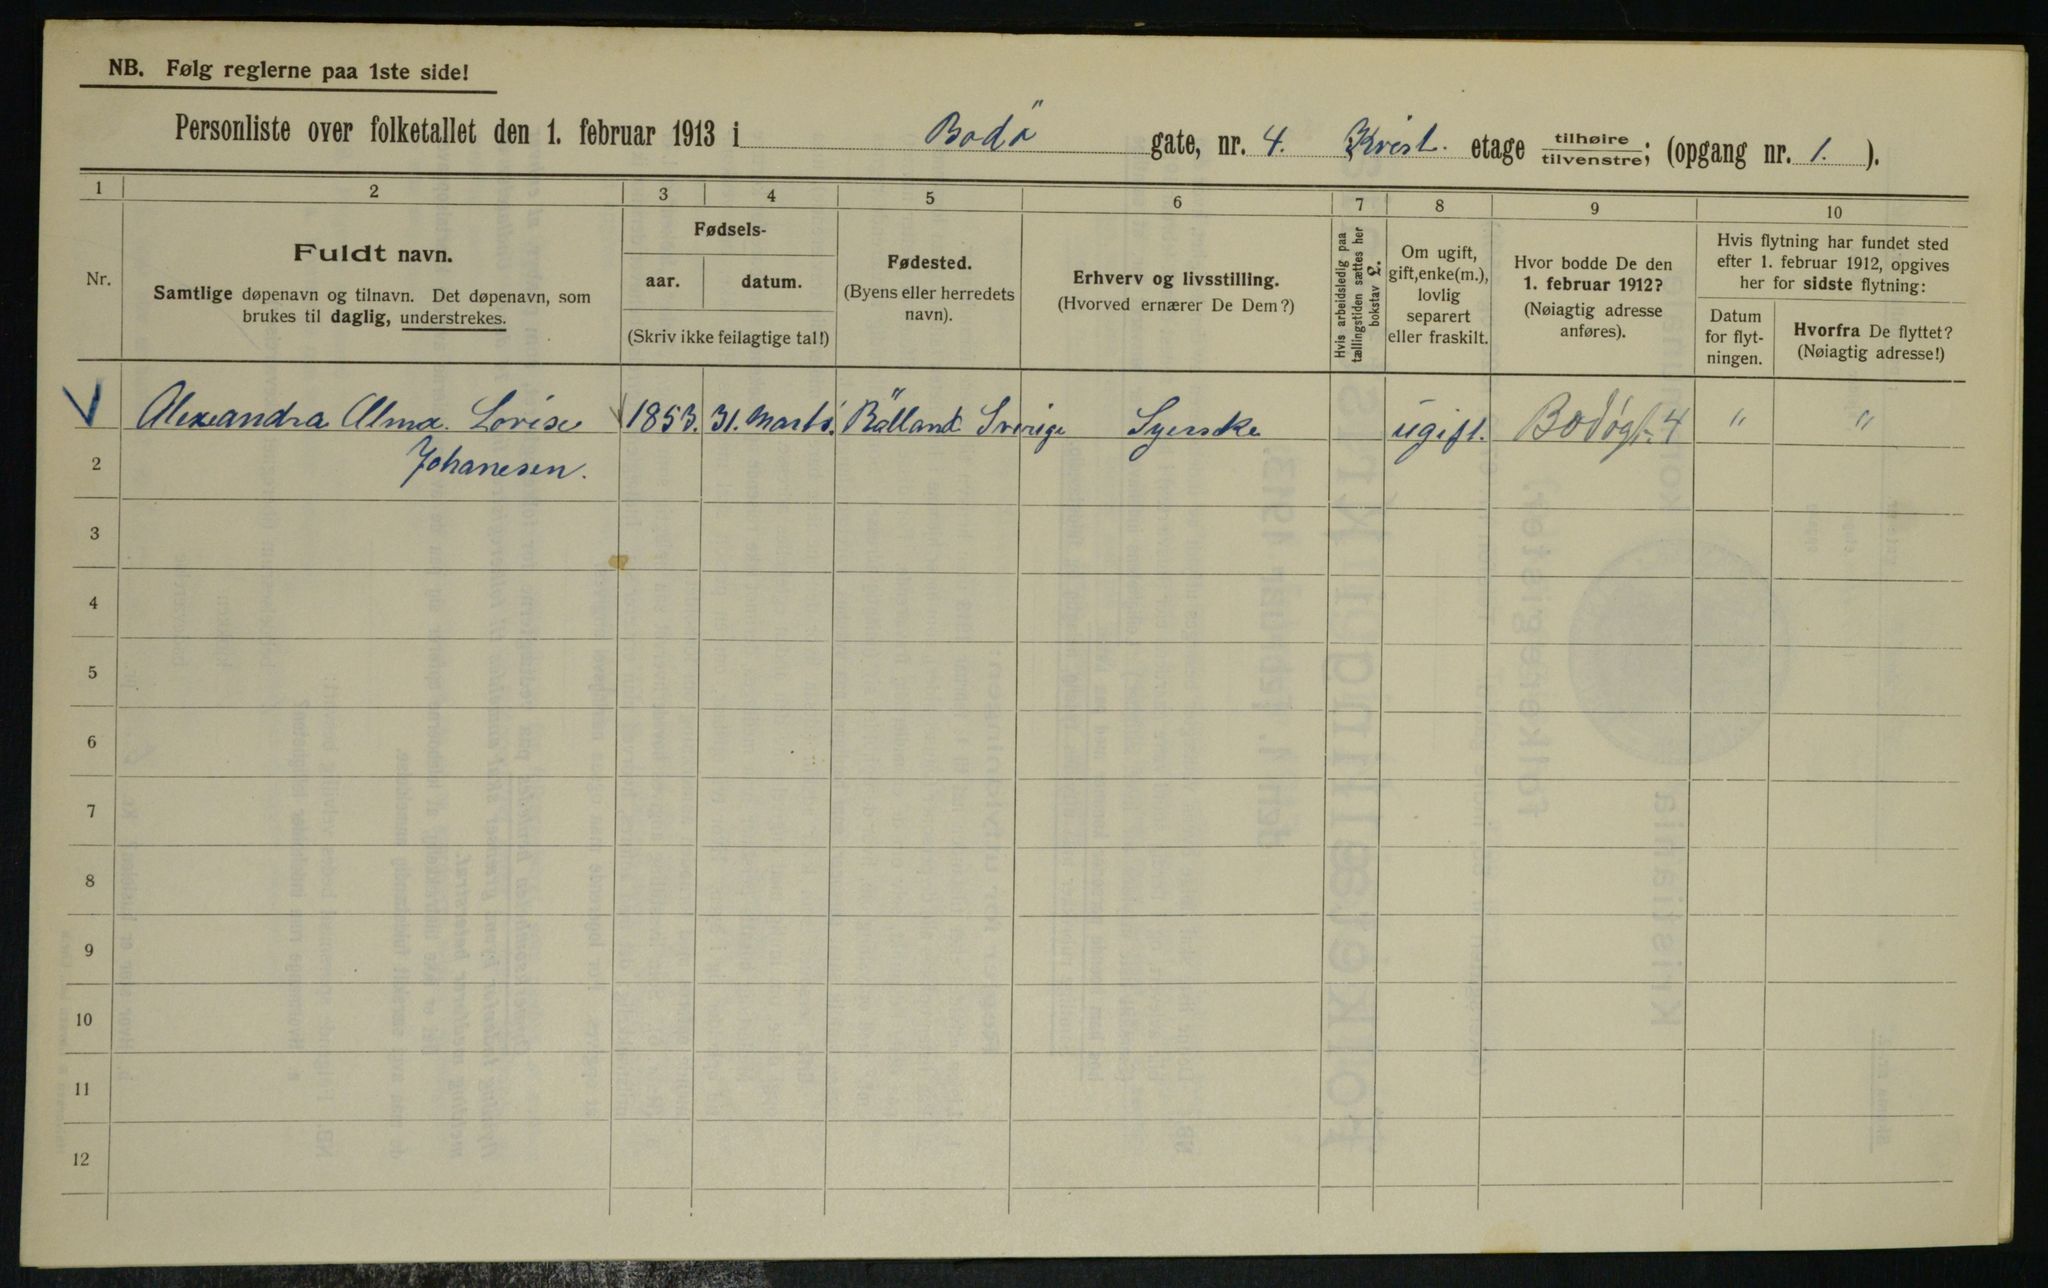 NB. Følg reglerne paa 1ste side!
Personliste over folketallet den 1. februar 1913 i Bodö gate, nr. 4. Kvist. etage tilhøire tilvenstre; (opgang nr. 1.).
1 2 3 4 5 6 7 8 9 10
Nr.
Fuldt navn.
Samtlige døpenavn og tilnavn. Det døpenavn, som
brukes til daglig, understrekes.
Fødsels-
aar. datum.
(Skriv ikke feilagtige tal!)
Fødested.
(Byens eller herredets
navn).
Erhverv og livsstilling.
(Hvorved ernærer De Dem?)
Hvis arbeidsledig paa
tællingstiden sættes her
bokstav L.
Om ugift,
gift, enke(m.),
lovlig
separert
eller fraskilt.
Hvor bodde De den
1. februar 1912?
(Nøiagtig adresse
anføres).
Hvis flytning har fundet sted
efter 1. februar 1912, opgives
her for sidste flytning:
Datum
for flyt-
ningen.
Hvorfra De flyttet?
(Nøiagtig adresse!)
Alexandra Alma Lovise 1853. 31. Marts. Sverige Syerske ugift. Bodøgt. 4 " "
Johanesen.
2
3
4
5
6
7
8
9
10
11
12